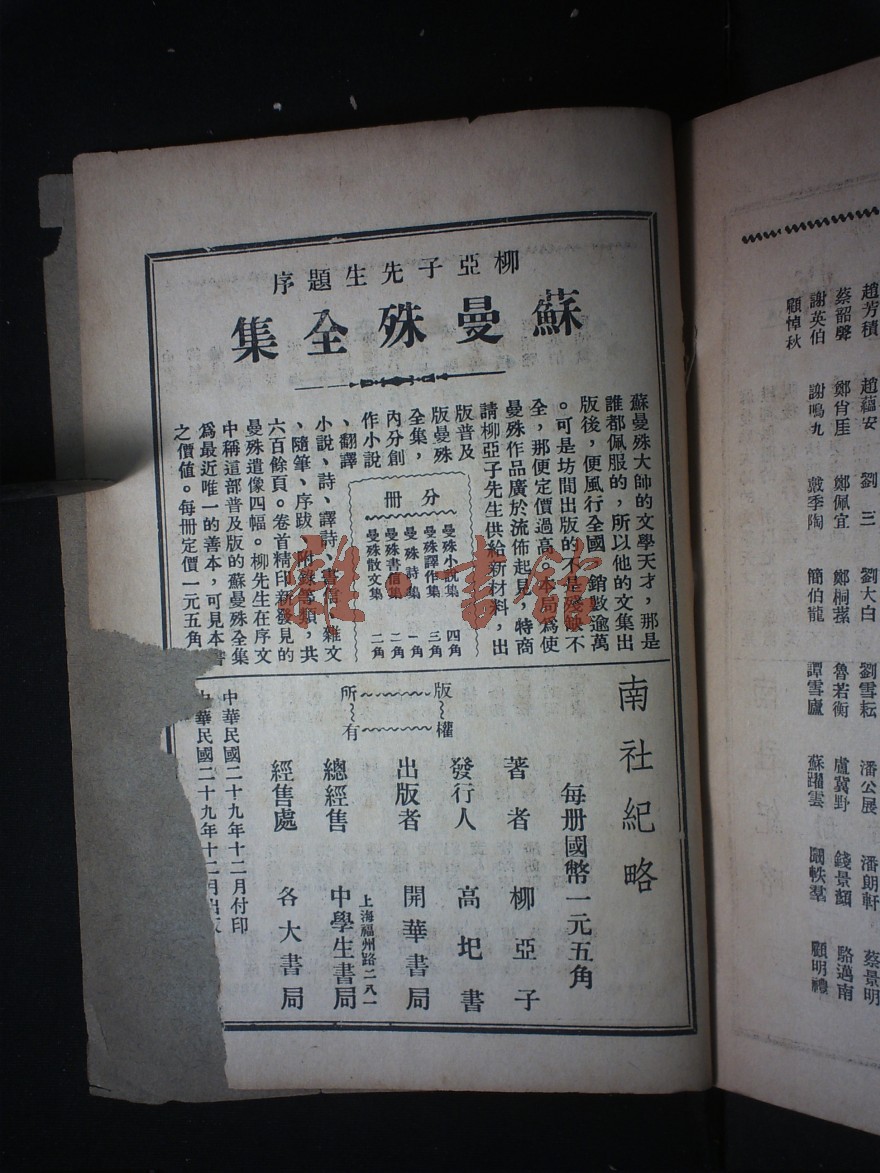 柳亞子先生題序
蘇曼殊全集
蘇曼殊大師的文學天才，那是
誰都佩服的，所以他的文集出
版後，便風行全國，銷數逾萬
。可是坊間出版的不是殘缺不
全，那便定價過高，本局為使
曼殊作品廣於流佈起見，特商
請柳亞子先生供給新材料，出
版普及
版曼殊
全集，
內分創
作小說
、翻譯
小說、詩、譯詩、書信、雜文
、隨筆、序跋、附錄等類，共
六百餘頁。卷首精印新發見的
曼殊遺像四幅。柳先生在序文
中稱這部普及版的蘇曼殊全集
為最近唯一的善本，可見本書
之價值。每冊定價一元五角
分冊
曼殊小說集 四角
曼殊譯作集 三角
曼殊詩集 一角
曼殊書信集 二角
曼殊散文集 二角
南社紀略
版權所有
每册國幣一元五角
著者 柳亞子
發行人 高圯書
出版者 開華書局
上海福州路二八一
總經售 中學生書局
經售處 各大書局
中華民國二十九年十二月付印
中華民國二十九年十二月出版
趙芳積 趙蘊安 劉三 劉大白 劉雪耘 潘公展 潘朗軒 蔡景明
蔡韶聲 鄭肯厓 鄭佩宜 鄭桐蓀 魯若衡 盧冀野 錢景顏 駱邁南
謝英伯 謝鳴九 戴季陶 簡伯龍 譚雪廬 蘇躍雲 闞軼羣 顧明禮
顧悼秋